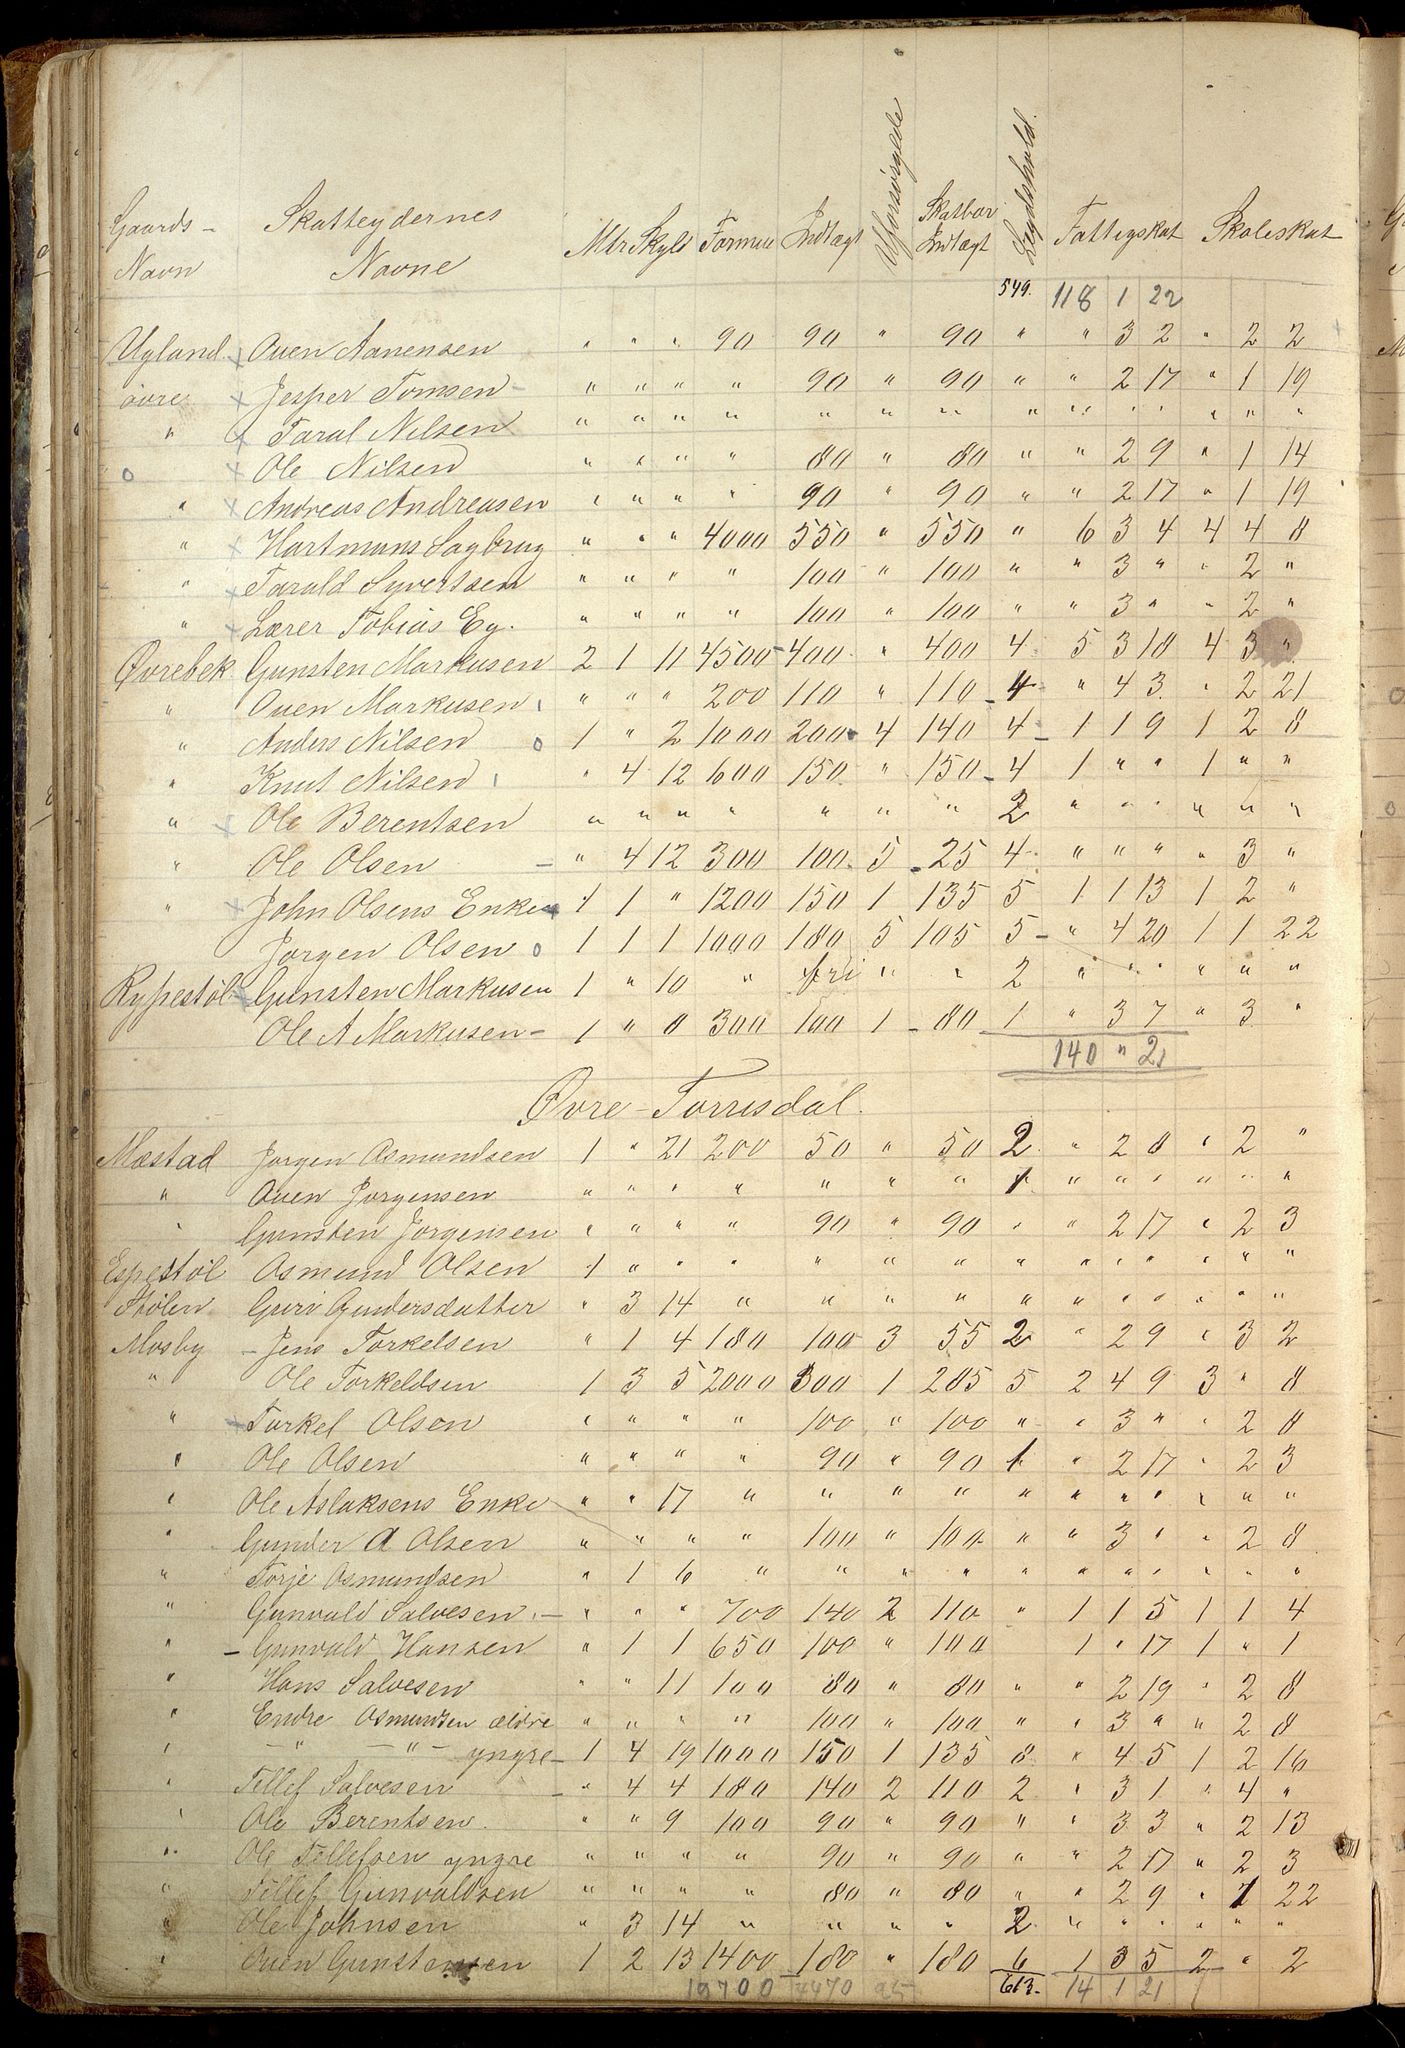 Gaards- Navn Skatteydernes Navne Mtr Skyld Formue Indtægt Uforsørgede Skatbar Indtægt Lægdshold. Fattigskat Skoleskat
549. 118 1 22
Ugland Ouen Aanensen " " " 90 90 " 90 " " 3 2 " 2 2
øvre Jesper Tomsen " " " " 90 " 90 " " 2 17 " 1 19
" Taral Nilsen " " " " " " " " " " " " " "
o Ole Nilsen " " " " 80 " 80 " " 2 9 " 1 14
" Andreas Andreasen " " " " 90 " 90 " " 2 17 " 1 19
" Hartmans Sagbrug " " " 4000 550 " 550 " 6 3 4 4 4 8
" Tarald Syvertsen " " " " 100 " 100 " " 3 " " 2 "
" Lærer Tobias Eg. " " " " 100 " 100 " " 3 " " 2 "
Øvrebek Gunsten Markusen 2 1 11 4500 400 " 400 4 5 3 18 4 3 "
" Ouen Markusen " " " 200 110 " 110 4 " 4 3 " 2 21
" Anders Nilsen o 1 " 2 1000 200 4 140 4 1 1 9 1 2 8
" Knut Nilsen " 4 12 600 150 " 150 4 1 " " 1 " "
" Ole Berentsen " " " " " " " 2 " " " " " "
" Ole Olsen " 4 12 300 100 5 25 4 " " " " 3 "
" John Olsens Enke 1 1 " 1200 150 1 135 5 1 1 13 1 2 "
Jørgen Olsen o 1 1 1 1000 180 5 105 5 " 4 20 1 1 22
Rypestøl Gunsten Markusen 1 " 10 " fri " " 2 " " " " " "
Ole A Markusen 1 " 8 300 100 1 80 1 " 3 7 " 3 "
140 " 21
Øvre-Torrisdal.
Mæstad Jørgen Osmundsen 1 " 21 200 50 " 50 2 " 2 8 " 2 "
" Ouen Jørgensen " " " " " " " 1 " " " " " "
" Gunsten Jørgensen " " " " 90 " 90 " " 2 17 " 2 3
Espestøl Osmund Olsen 1 " " " " " " " " " " " " "
Stølen Guri Gundersdatter " 3 14 " " " " " " " " " " "
Mosby Jens Torkelsen " 1 4 180 100 3 55 2 " 2 9 " 3 2
" Ole Torkeldsen 1 3 5 2000 300 1 285 5 2 4 9 3 " 8
" Torkel Olsen " " " " 100 " 100 " " 3 " " 2 8
" Ole Olsen " " " " 90 " 90 1 " 2 17 " 2 3
" Ole Aslaksens Enke " " 17 " " " " " " " " " " "
" Gunder A Olsen " " " " 100 " 100 " " 3 " " 2 8
" Torje Osmundsen " 1 6 " " " " " " " " " " "
" Gunvald Salvesen " " " 700 140 2 110 " 1 1 5 1 1 4
" Gunvald Hansen " 1 1 650 100 " 100 1 " 17 1 " 1
" Hans Salvesen " " 11 100 80 " 80 " " 2 19 " 2 8
" Endre Osmundsen ældre " " " " 100 " 100 " " 3 " " 2 8
" -"- -"- yngre 1 4 19 1000 150 1 135 8 " 4 5 1 2 16
" Tellef Salvesen " 4 4 180 140 2 110 2 " 3 1 " 4 "
" Ole Berentsen. " " 9 100 90 " 90 " " 3 3 " 2 13
" Ole Tellefsen yngre " " " " 90 " 90 " " 2 17 " 2 3
" Tellef Gunvaldsen " " " " 80 " 80 " " 2 9 " 1 22
" Ole Johnsen " 3 14 " " " " 2 " " " " " "
" Ouen Gunstensen 1 2 13 1400 180 " 180 6 1 3 5 2 " 2
19700 4470 95 613. 14 1 21